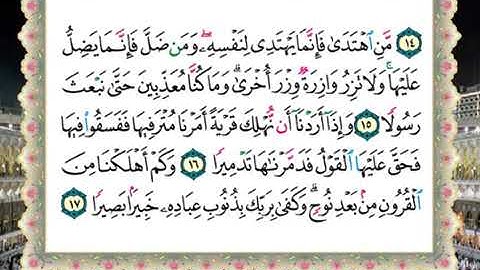 ١٤ مَّنِ ٱهْتَدَىٰ فَإِنَّمَا يَهْتَدِى لِنَفْسِهِۦ ۖ وَمَن ضَلَّ فَإِنَّمَا يَضِلُّ
عَلَيْهَا ۚ وَلَا تَزِرُ وَازِرَةٌ وِزْرَ أُخْرَىٰ ۗ وَمَا كُنَّا مُعَذِّبِينَ حَتَّىٰ نَبْعَثَ
رَسُولًا ١٥ وَإِذَا أَرَدْنَا أَن نُّهْلِكَ قَرْيَةً أَمَرْنَا مُتْرَفِيهَا فَفَسَقُوا۟ فِيهَا
فَحَقَّ عَلَيْهَا ٱلْقَوْلُ فَدَمَّرْنَـٰهَا تَدْمِيرًا ١٦ وَكَمْ أَهْلَكْنَا مِنَ
ٱلْقُرُونِ مِنۢ بَعْدِ نُوحٍ ۗ وَكَفَىٰ بِرَبِّكَ بِذُنُوبِ عِبَادِهِۦ خَبِيرًۢا بَصِيرًا ١٧